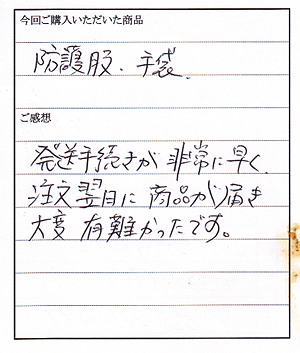 今回ご購入いただいた商品
防護服、手袋、
ご感想
発送手続きが非常に早く、
注文翌日に商品が届き
大変有難かったです。